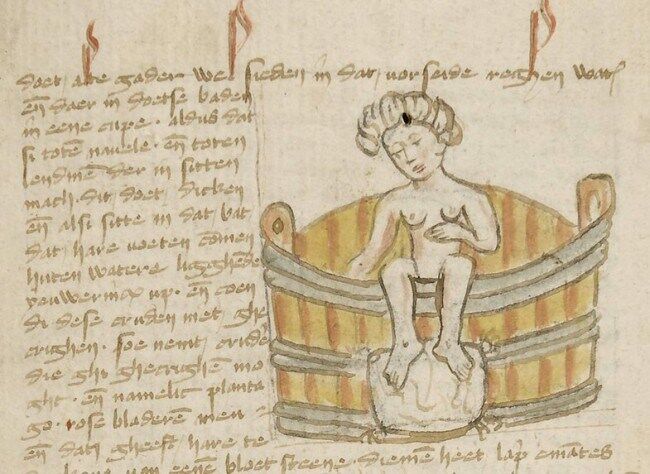 doet alte gader wel sieden in dat vorseide reghen wat'
eñ daer in doetse baden
in eene cupe · aldus dat
si toten navele · eñ toten
lendinen der in sitten
mach · dit doet dicken
eñ alsi sitte in dat bat
dat hare voeten comen
huten watere ligghende
up · eñ
di dese cruden niet ghe
crighen · soe nemt crude
die ghi ghecrighen mo
ght · eñ namelic planta
go · rose bladeren
eñ dat gheeft hare te
van eenen bloet steene · diemen heet lap' ematès